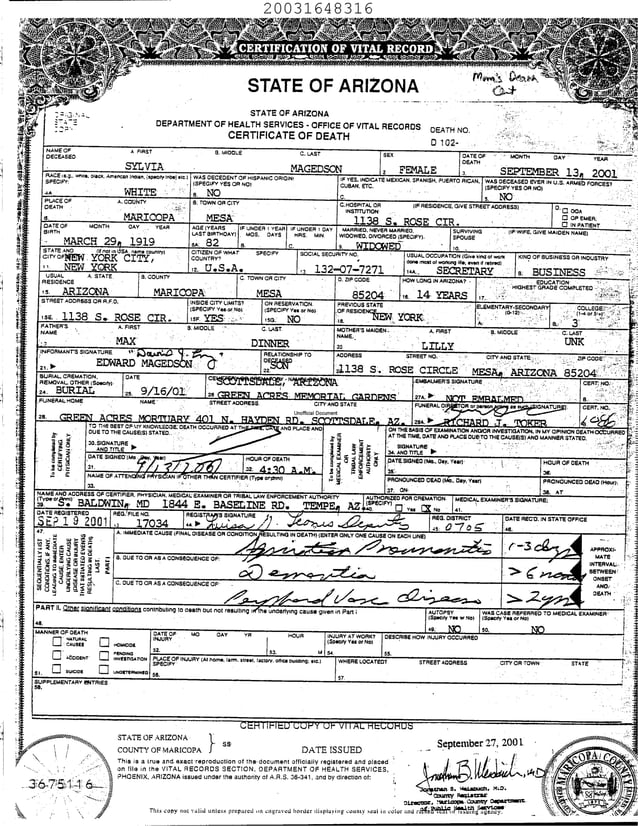 20031648316
CERTIFICATION OF VITAL RECORD
STATE OF ARIZONA
Mom's Death Cert
STATE OF ARIZONA
DEPARTMENT OF HEALTH SERVICES - OFFICE OF VITAL RECORDS
CERTIFICATE OF DEATH
DEATH NO.
D 102-
NAME OF DECEASED A. FIRST B. MIDDLE C. LAST SEX DATE OF DEATH MONTH DAY YEAR
SYLVIA MAGEDSON 2. FEMALE 3. SEPTEMBER 13, 2001
RACE (e.g., white, black, American Indian, (specify tribe) etc.) SPECIFY: WAS DECEDENT OF HISPANIC ORIGIN? (SPECIFY YES OR NO) IF YES, INDICATE MEXICAN, SPANISH, PUERTO RICAN, CUBAN, ETC. WAS DECEASED EVER IN U.S. ARMED FORCES? (SPECIFY YES OR NO)
4A. WHITE B. NO C. 5. NO
PLACE OF DEATH A. COUNTY B. TOWN OR CITY C. HOSPITAL OR INSTITUTION (IF RESIDENCE, GIVE STREET ADDRESS) D. DOA OP EMER. IN PATIENT
6. MARICOPA MESA 1138 S. ROSE CIR.
DATE OF BIRTH MONTH DAY YEAR AGE (YEARS LAST BIRTHDAY) IF UNDER 1 YEAR MOS. DAYS IF UNDER 1 DAY HRS. MIN. MARRIED, NEVER MARRIED, WIDOWED, DIVORCED (SPECIFY). SURVIVING SPOUSE (IF WIFE, GIVE MAIDEN NAME)
7. MARCH 29, 1919 8A. 82 B. C. 9. WIDOWED 10.
STATE AND CITY OF (If not in USA, name country) CITIZEN OF WHAT COUNTRY? SPECIFY SOCIAL SECURITY NO. USUAL OCCUPATION (Give kind of work done most of working life, even if retired) KIND OF BUSINESS OR INDUSTRY
NEW YORK CITY,
11. NEW YORK 12. U.S.A. 13. 132-07-7271 14A. SECRETARY B. BUSINESS
USUAL RESIDENCE A. STATE B. COUNTY C. TOWN OR CITY D. ZIP CODE HOW LONG IN ARIZONA? EDUCATION HIGHEST GRADE COMPLETED
15. ARIZONA MARICOPA MESA 85204 16. 14 YEARS 17.
STREET ADDRESS OR R.F.D. INSIDE CITY LIMITS? (Specify Yes or No) ON RESERVATION (Specify Yes or No) PREVIOUS STATE OF RESIDENCE ELEMENTARY-SECONDARY (0-12) COLLEGE (1-4 or 5+)
15E. 1138 S. ROSE CIR. 15F. YES 15G. NO 18. NEW YORK A. B. 3
FATHER'S NAME A. FIRST B. MIDDLE C. LAST MOTHER'S MAIDEN NAME A. FIRST B. MIDDLE C. LAST
19. MAX DINNER 20. LILLY UNK
INFORMANT'S SIGNATURE RELATIONSHIP TO DECEASED ADDRESS STREET NO. CITY AND STATE ZIP CODE
21. EDWARD MAGEDSON 22. SON 23. 1138 S. ROSE CIRCLE MESA, ARIZONA 85204
BURIAL, CREMATION, REMOVAL, OTHER (Specify) DATE EMBALMER'S SIGNATURE CERT. NO.
SCOTTSDALE, ARIZONA
24. BURIAL 25. 9/16/01 26. GREEN ACRES MEMORIAL GARDENS 27A. NOT EMBALMED B.
FUNERAL HOME NAME STREET ADDRESS CITY AND STATE CERT. NO.
Unofficial Document
28. GREEN ACRES MORTUARY 401 N. HAYDEN RD. SCOTTSDALE, AZ. 29A. RICHARD J. TOKER
TO THE BEST OF MY KNOWLEDGE, DEATH OCCURRED AT THE TIME, DATE AND PLACE AND DUE TO THE CAUSE(S) STATED. ON THE BASIS OF EXAMINATION AND/OR INVESTIGATION, IN MY OPINION DEATH OCCURRED AT THE TIME, DATE AND PLACE DUE TO THE CAUSE(S) AND MANNER STATED.
To be completed by CERTIFYING PHYSICIAN ONLY
30. SIGNATURE AND TITLE
To be completed by MEDICAL EXAMINER OR TRIBAL LAW ENFORCEMENT AUTHORITY ONLY
34. SIGNATURE AND TITLE
DATE SIGNED (Mo., Day, Year) HOUR OF DEATH DATE SIGNED (Mo., Day, Year) HOUR OF DEATH
31. 32. 4:30 A.M. 35. 36.
NAME OF ATTENDING PHYSICIAN IF OTHER THAN CERTIFIER (Type or print) PRONOUNCED DEAD (Mo., Day, Year) PRONOUNCED DEAD (Hour)
33. 37. ON 38. AT
NAME AND ADDRESS OF CERTIFIER, PHYSICIAN, MEDICAL EXAMINER OR TRIBAL LAW ENFORCEMENT AUTHORITY AUTHORIZED FOR CREMATION (Specify) MEDICAL EXAMINER'S SIGNATURE:
(Type or print) S. BALDWIN, MD 1844 E. BASELINE RD. TEMPE, AZ Yes X No
DATE REGISTERED REG. FILE NO. REGISTRAR'S SIGNATURE REG. DISTRICT DATE REC'D. IN STATE OFFICE
SEP 19 2001 17034 0705
A. IMMEDIATE CAUSE (FINAL DISEASE OR CONDITION RESULTING IN DEATH) (ENTER ONLY ONE CAUSE ON EACH LINE)
SEQUENTIALLY LIST CONDITIONS, IF ANY, LEADING TO IMMEDIATE CAUSE. ENTER UNDERLYING CAUSE (DISEASE OR INJURY THAT INITIATED EVENTS RESULTING IN DEATH) LAST
PART I
Aspiration Pneumonitis 1-3 days
B. DUE TO OR AS A CONSEQUENCE OF:
Dementia > 6 mos
C. DUE TO OR AS A CONSEQUENCE OF:
Peripheral Vasc disease > 2 yrs
APPROXIMATE INTERVAL BETWEEN ONSET AND DEATH
PART II. Other significant conditions contributing to death but not resulting in the underlying cause given in Part I AUTOPSY (Specify Yes or No) WAS CASE REFERRED TO MEDICAL EXAMINER? (Specify Yes or No)
48. 49. NO 50. NO
MANNER OF DEATH DATE OF INJURY MO DAY YR HOUR INJURY AT WORK? (Specify Yes or No) DESCRIBE HOW INJURY OCCURRED
NATURAL CAUSES HOMICIDE 52. 53. M 54. 55.
ACCIDENT PENDING INVESTIGATION PLACE OF INJURY (At home, farm, street, factory, office building, etc.) SPECIFY WHERE LOCATED? STREET ADDRESS CITY OR TOWN STATE
51. SUICIDE UNDETERMINED 56. 57.
SUPPLEMENTARY ENTRIES
58.
CERTIFIED COPY OF VITAL RECORDS
STATE OF ARIZONA
COUNTY OF MARICOPA } SS
DATE ISSUED September 27, 2001
This is a true and exact reproduction of the document officially registered and placed on file in the VITAL RECORDS SECTION, DEPARTMENT OF HEALTH SERVICES, PHOENIX, ARIZONA issued under the authority of A.R.S. 36-341, and by direction of:
Jonathan B. Weisbuch, M.D.
County Registrar
Director, Maricopa County Department of Public Health Services
3675116
MARICOPA COUNTY
This copy not valid unless prepared on engraved border displaying county seal in color and raised seal of issuing agency.